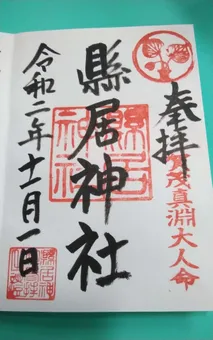 奉拝
賀茂真淵大人命
縣居神社
縣居神社
令和二年十二月一日